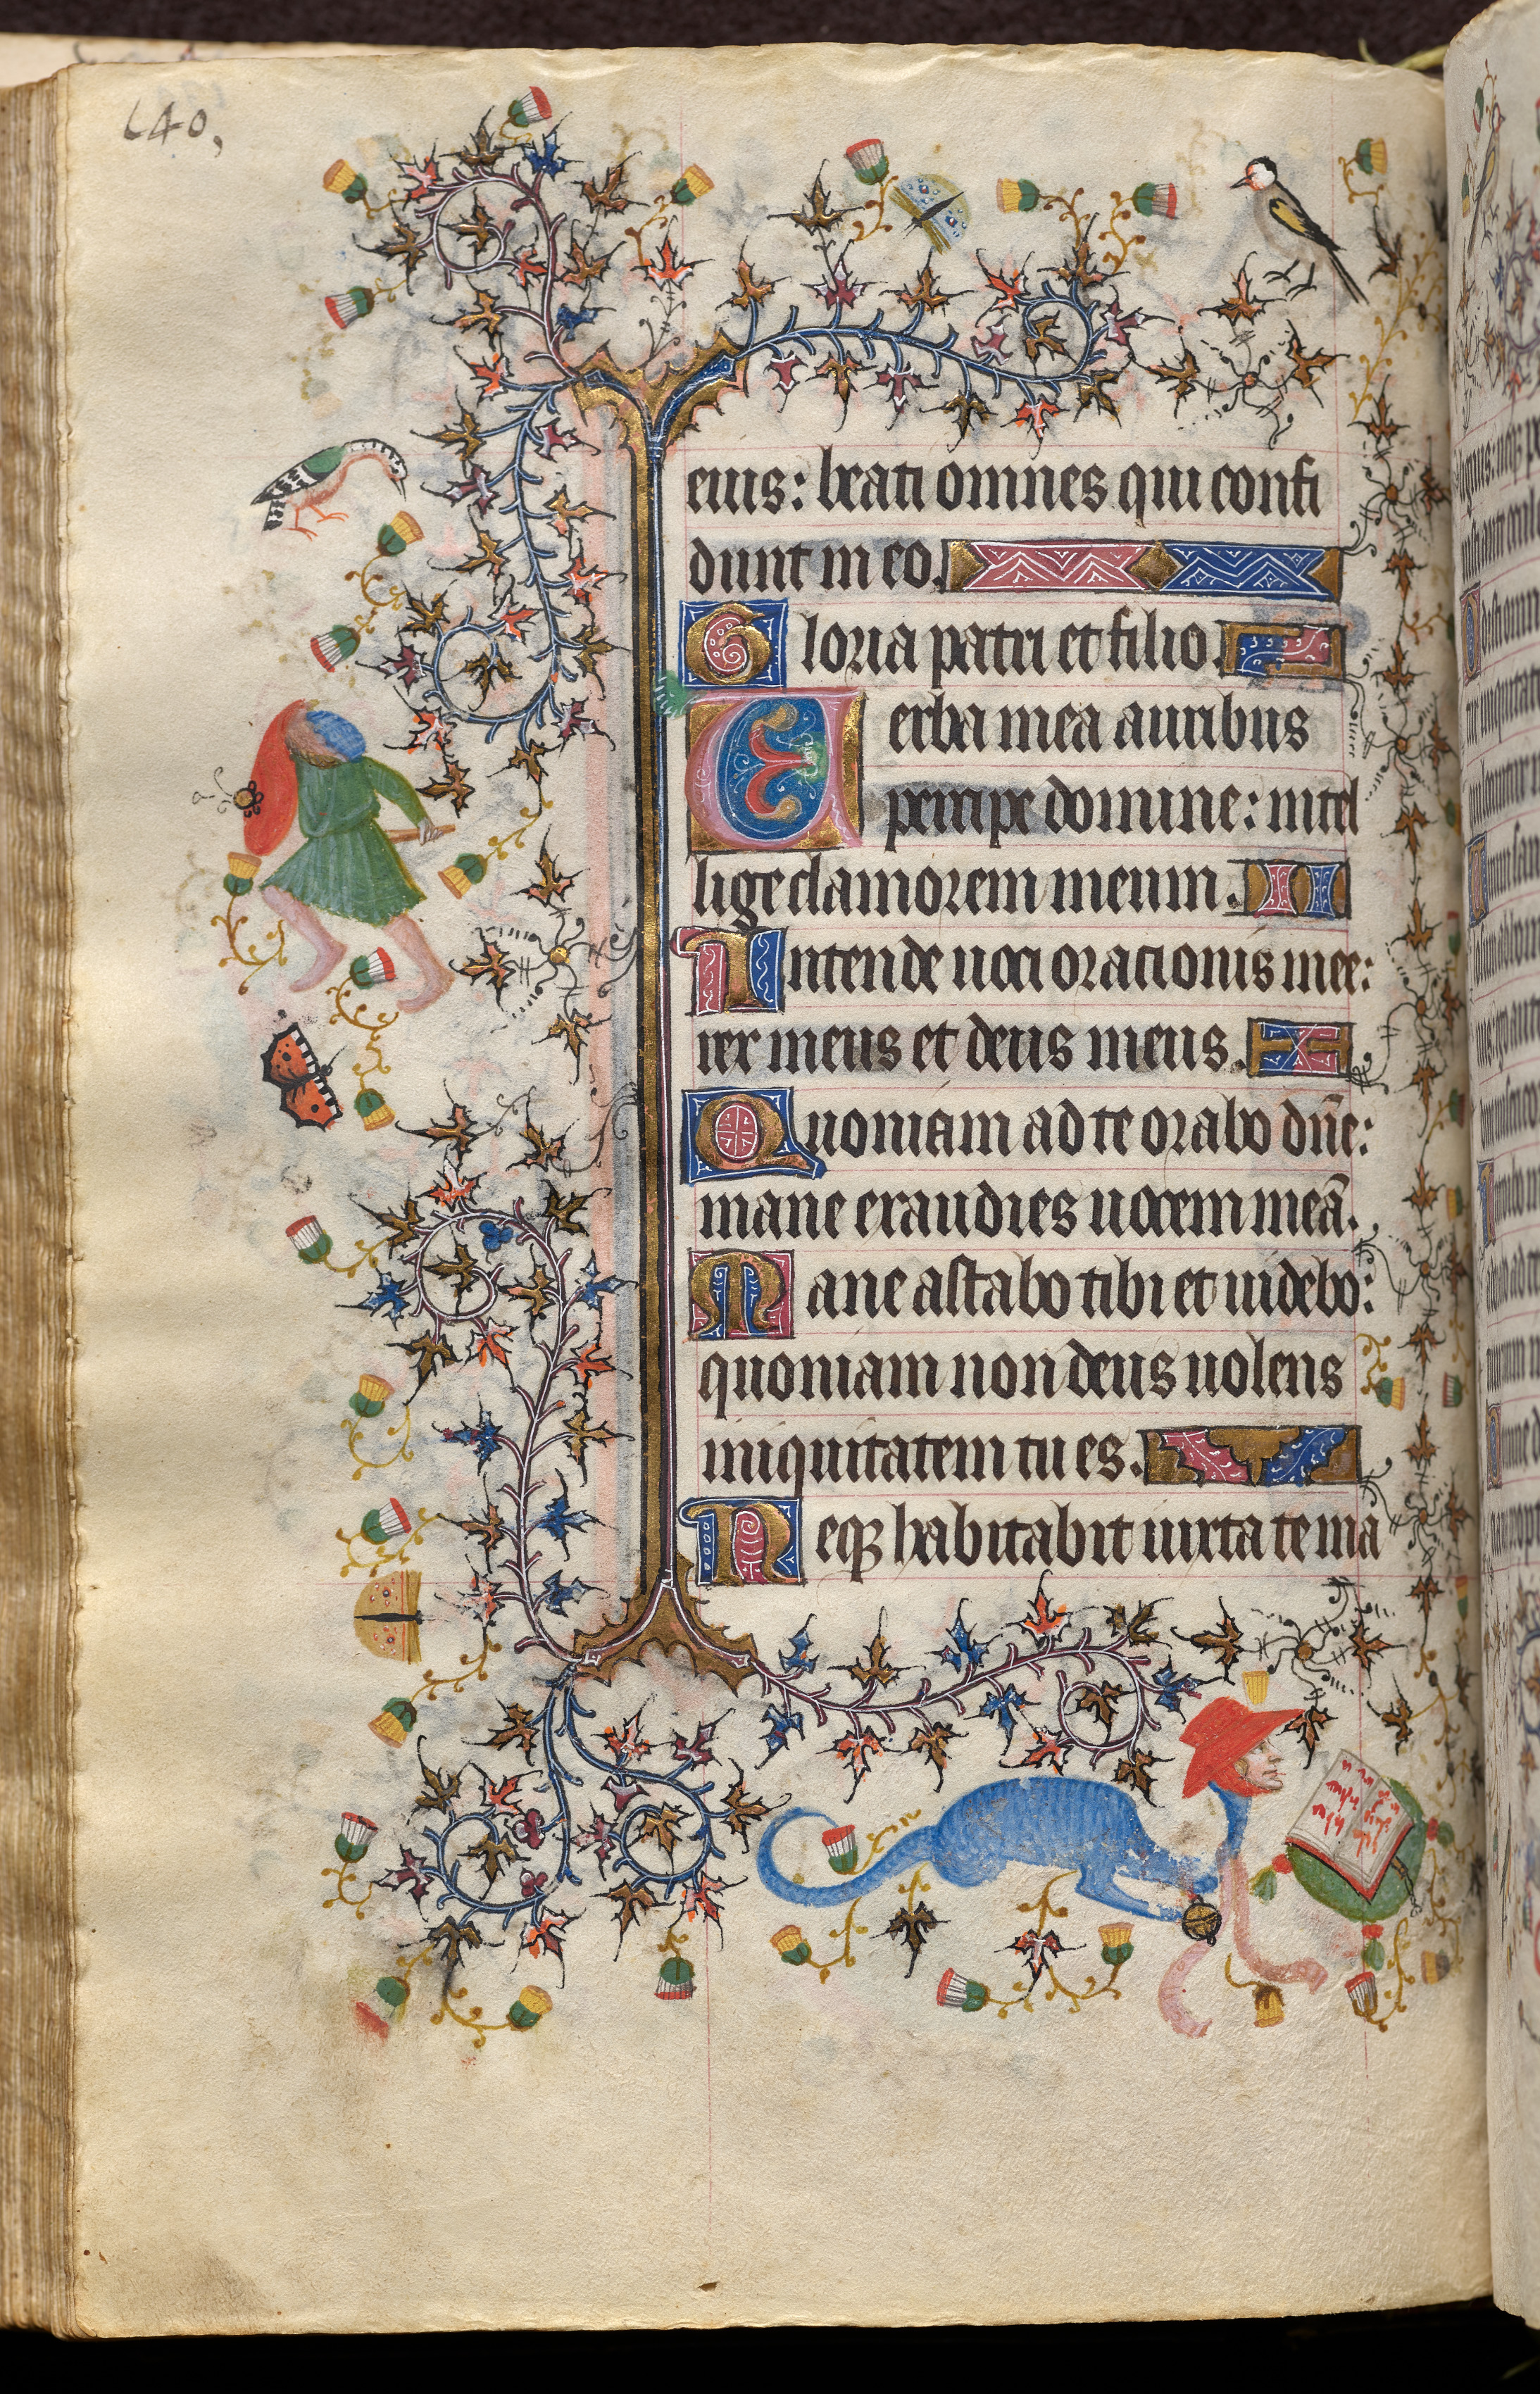 140,
eius: beati omnes qui confi
dunt in eo.
Gloria patri et filio.
Verba mea auribus
percipe domine: intel
lige clamorem meum.
Intende uoci orationis mee:
rex meus et deus meus.
Quoniam ad te orabo dn̄e:
mane exaudies uocem meā.
Mane astabo tibi et uidebo:
quoniam non deus uolens
iniquitatem tu es.
Neqꝫ habitabit iuxta te ma